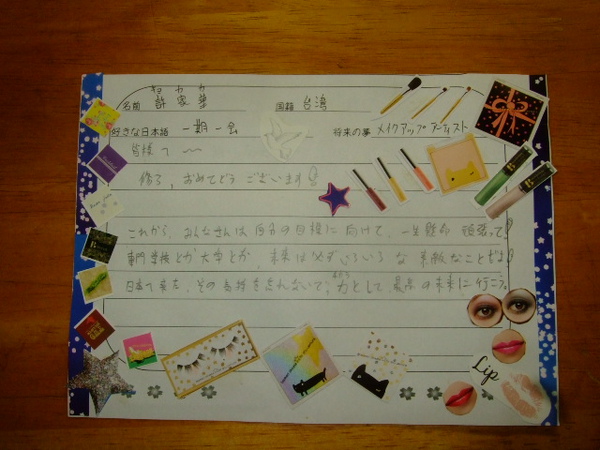 キョ カ カ
名前 許家華 国籍 台湾
好きな日本語 一期一会 将来の夢 メイクアップアーティスト
皆様へ
修了、おめでとうございます
これから、みんなさんは自分の目標に向けて、一生懸命頑張って
専門学校とか大学とか、未来は必ずいろいろな素敵なことだよ
日本で 来た、その気持を忘れないで、力として最高の未来に行こう。
Lip